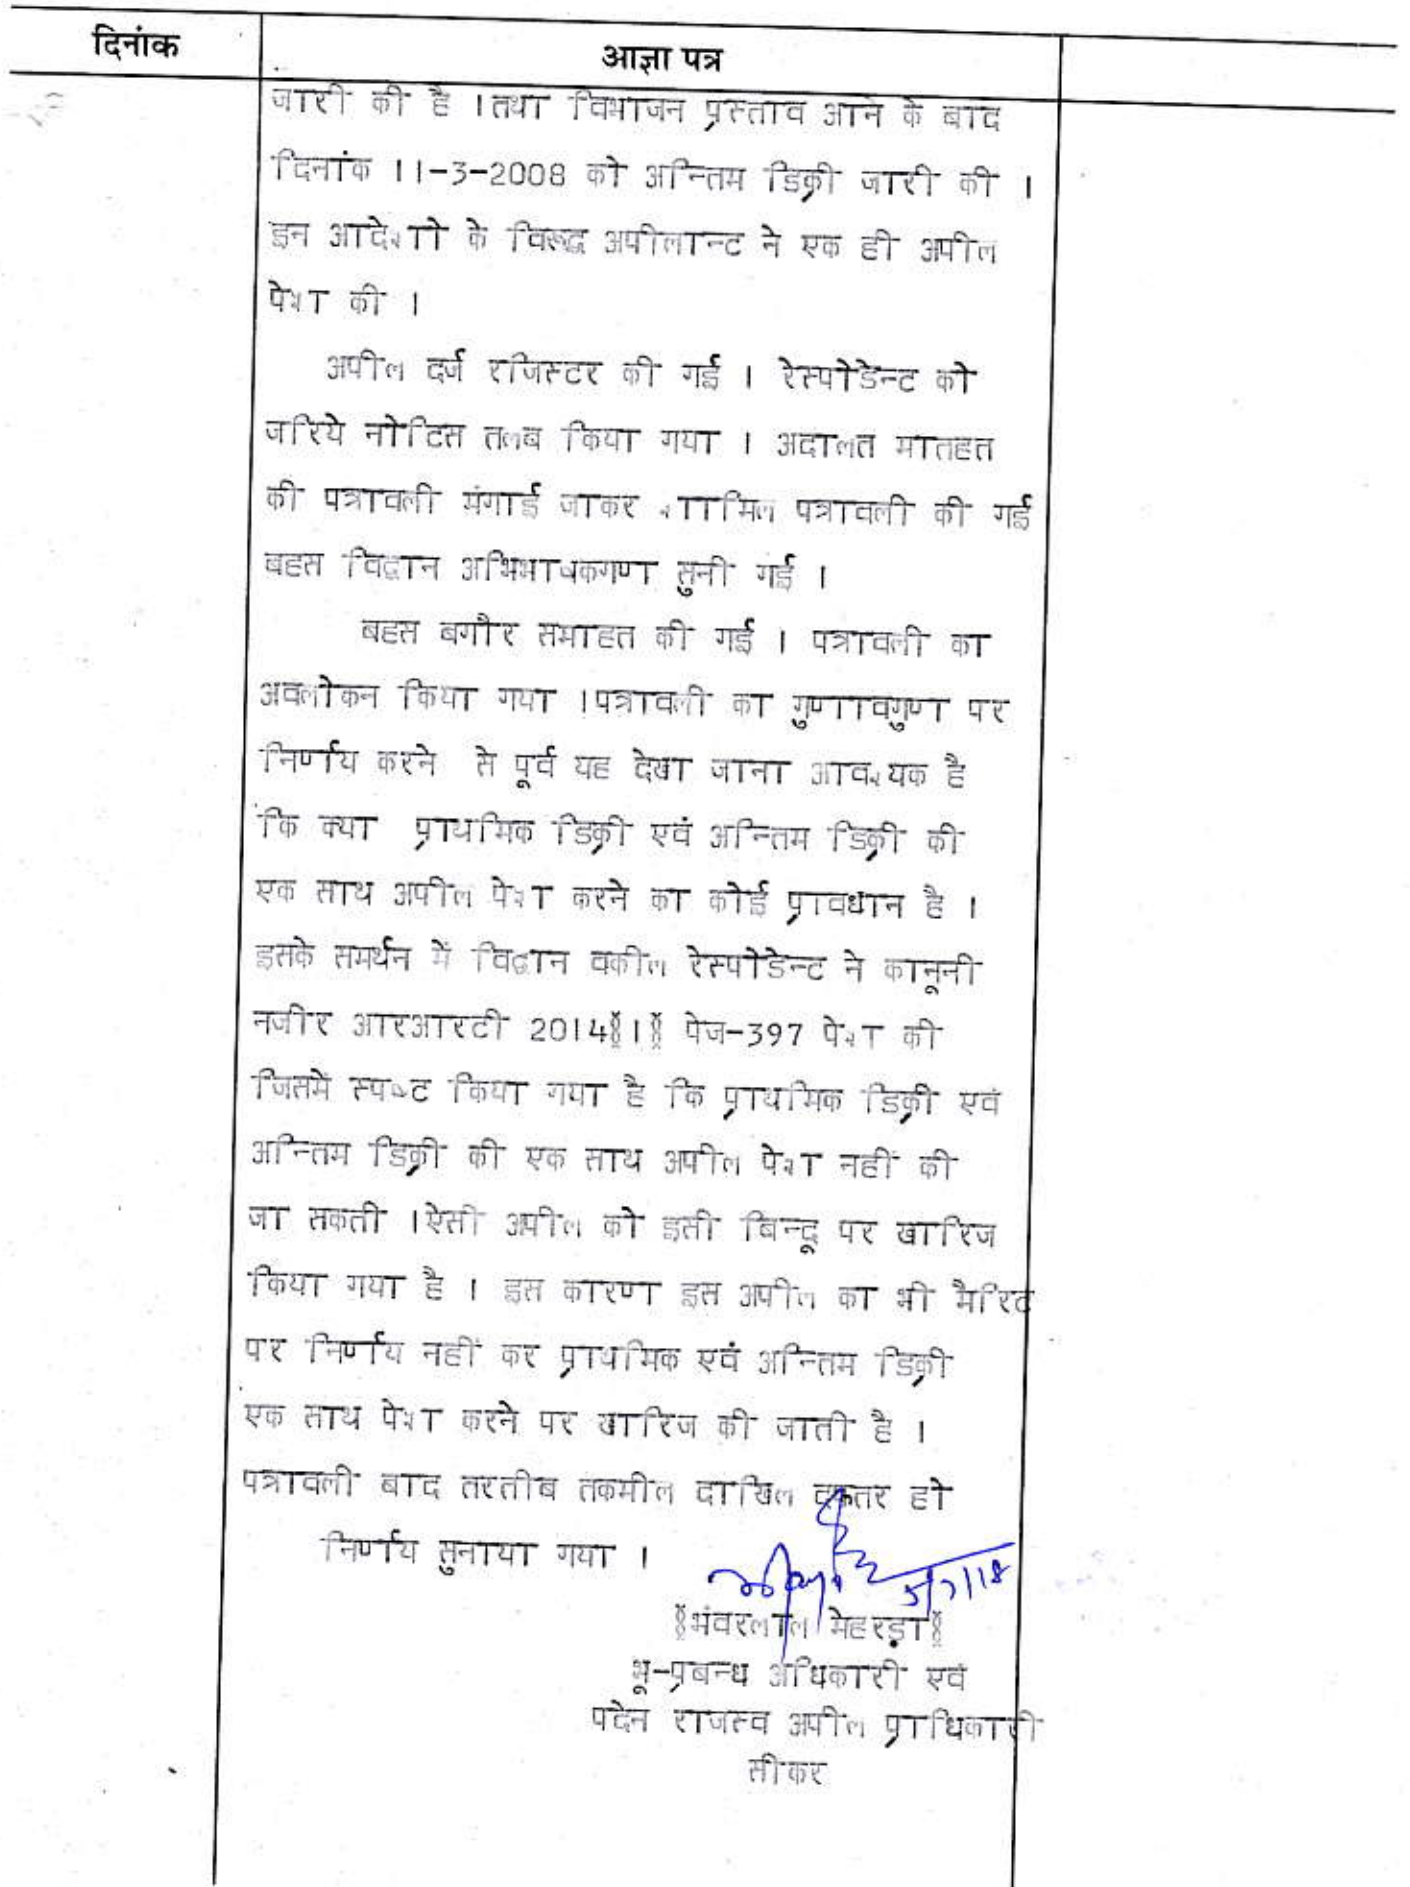 दिनांक
आज्ञा पत्र
जारी की है ।तथा विभाजन प्रस्ताव आने के बाद
दिनांक 11-3-2008 को अन्तिम डिक्री जारी की ।
इन आदेशों के विरूद्ध अपीलान्ट ने एक ही अपील
पेश की ।
अपील दर्ज रजिस्टर की गई । रेस्पोडेन्ट को
जरिये नोटिस तलब किया गया । अदालत मातहत
की पत्रावली मंगाई जाकर शामिल पत्रावली की गई
बहस विद्वान अभिभाषकगण सुनी गई ।
बहस बगौर समाहत की गई । पत्रावली का
अवलोकन किया गया ।पत्रावली का गुणावगुण पर
निर्णय करने से पूर्व यह देखा जाना आवश्यक है
कि क्या प्राथमिक डिक्री एवं अन्तिम डिक्री की
एक साथ अपील पेश करने का कोई प्रावधान है ।
इसके समर्थन में विद्वान वकील रेस्पोडेन्ट ने कानूनी
नजीर आरआरटी 2014§1§ पेज-397 पेश की
जिसमें स्पष्ट किया गया है कि प्राथमिक डिक्री एवं
अन्तिम डिक्री की एक साथ अपील पेश नहीं की
जा सकती ।ऐसी अपील को इसी बिन्दू पर खारिज
किया गया है । इस कारण इस अपील का भी मैरिट
पर निर्णय नहीं कर प्राथमिक एवं अन्तिम डिक्री
एक साथ पेश करने पर खारिज की जाती है ।
पत्रावली बाद तरतीब तकमील दाखिल दफ्तर हो
निर्णय सुनाया गया ।
§भंवरलाल मेहरड़ा§
भू-प्रबन्ध अधिकारी एवं
पदेन राजस्व अपील प्राधिकारी
सीकर